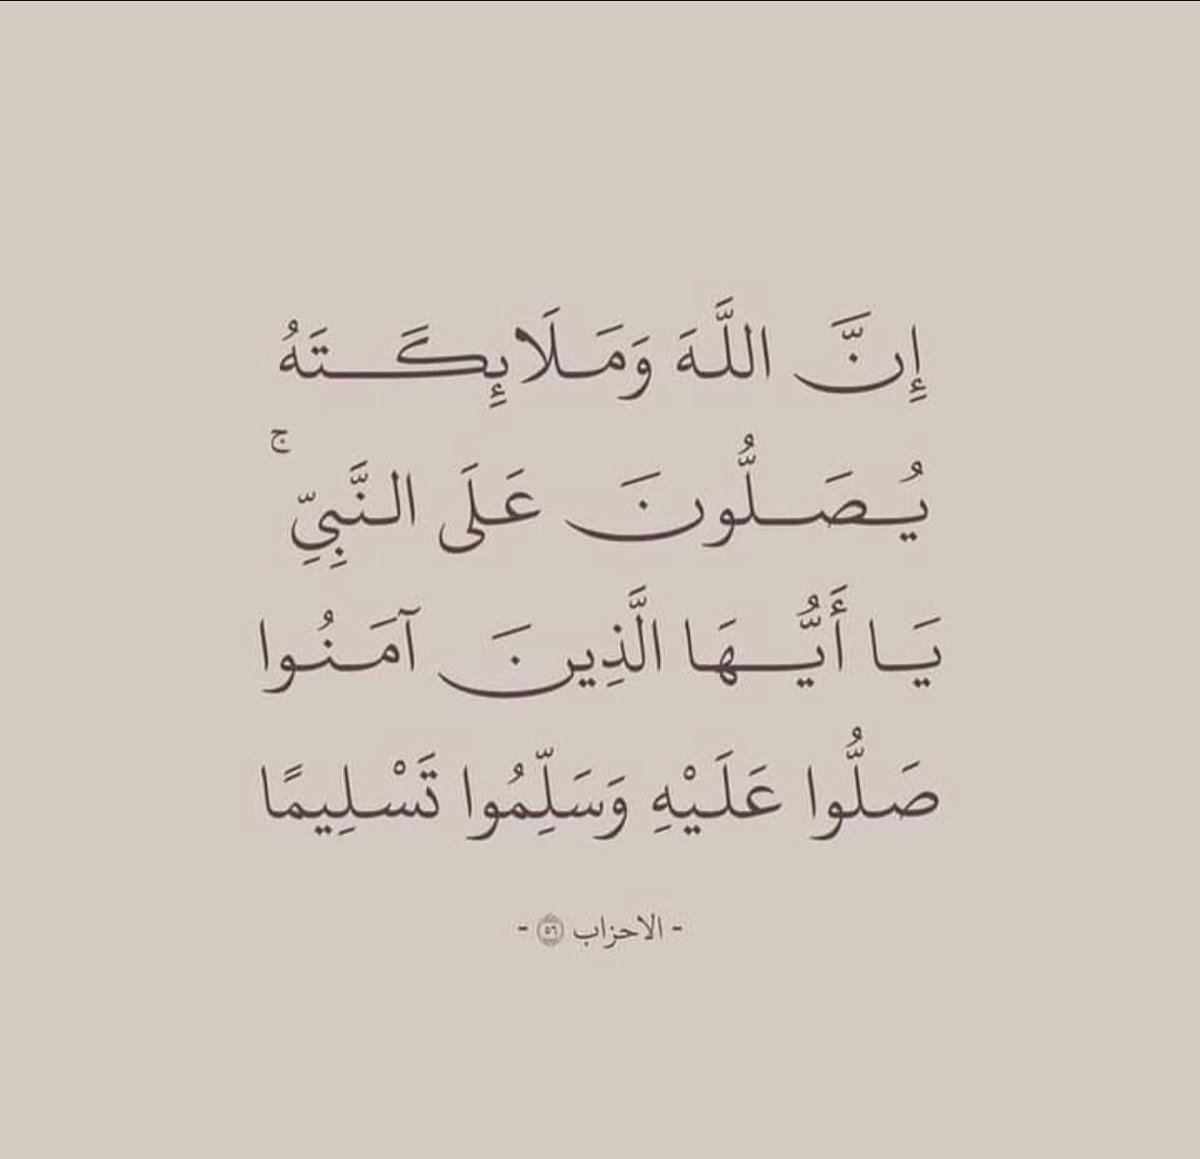 إِنَّ اللَّهَ وَمَلَائِكَتَهُ
يُصَلُّونَ عَلَى النَّبِيِّ ۚ
يَا أَيُّهَا الَّذِينَ آمَنُوا
صَلُّوا عَلَيْهِ وَسَلِّمُوا تَسْلِيمًا
- الاحزاب ٥٦ -